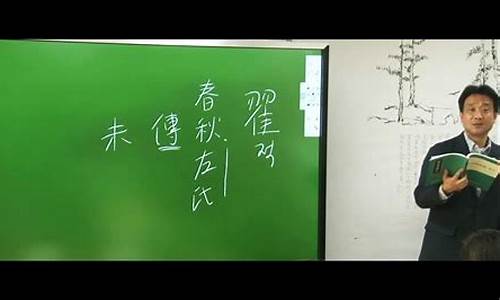 翟적
春秋左氏
傳
未